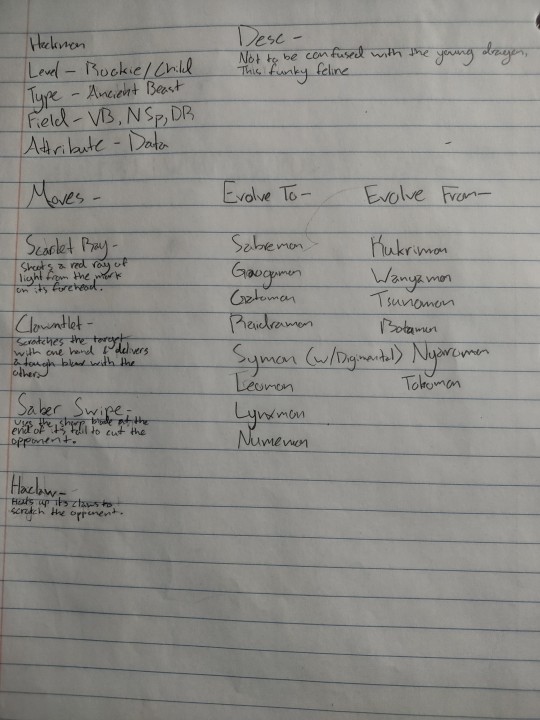 Hackmon
Level - Rookie/Child
Type - Ancient Beast
Field - VB, NSp, DR
Attribute - Data
Desc -
Not to be confused with the young dragon,
This funky feline
Moves -
Scarlet Ray -
Shoots a red ray of
light from the mark
on its forehead.
Clawntlet -
Scratches the target
with one hand & delivers
a tough blow with the
other.
Saber Swipe -
Uses the sharp blade at the
end of its tail to cut the
opponent.
Haclaw -
Heats up its claws to
scratch the opponent.
Evolve To -
Sabremon
Gaogamon
Gatomon
Raidramon
Symon (w/Digimental)
Leomon
Lynxmon
Numemon
Evolve From -
Kukrimon
Wanyamon
Tsunomon
Botamon
Nyaromon
Tokomon